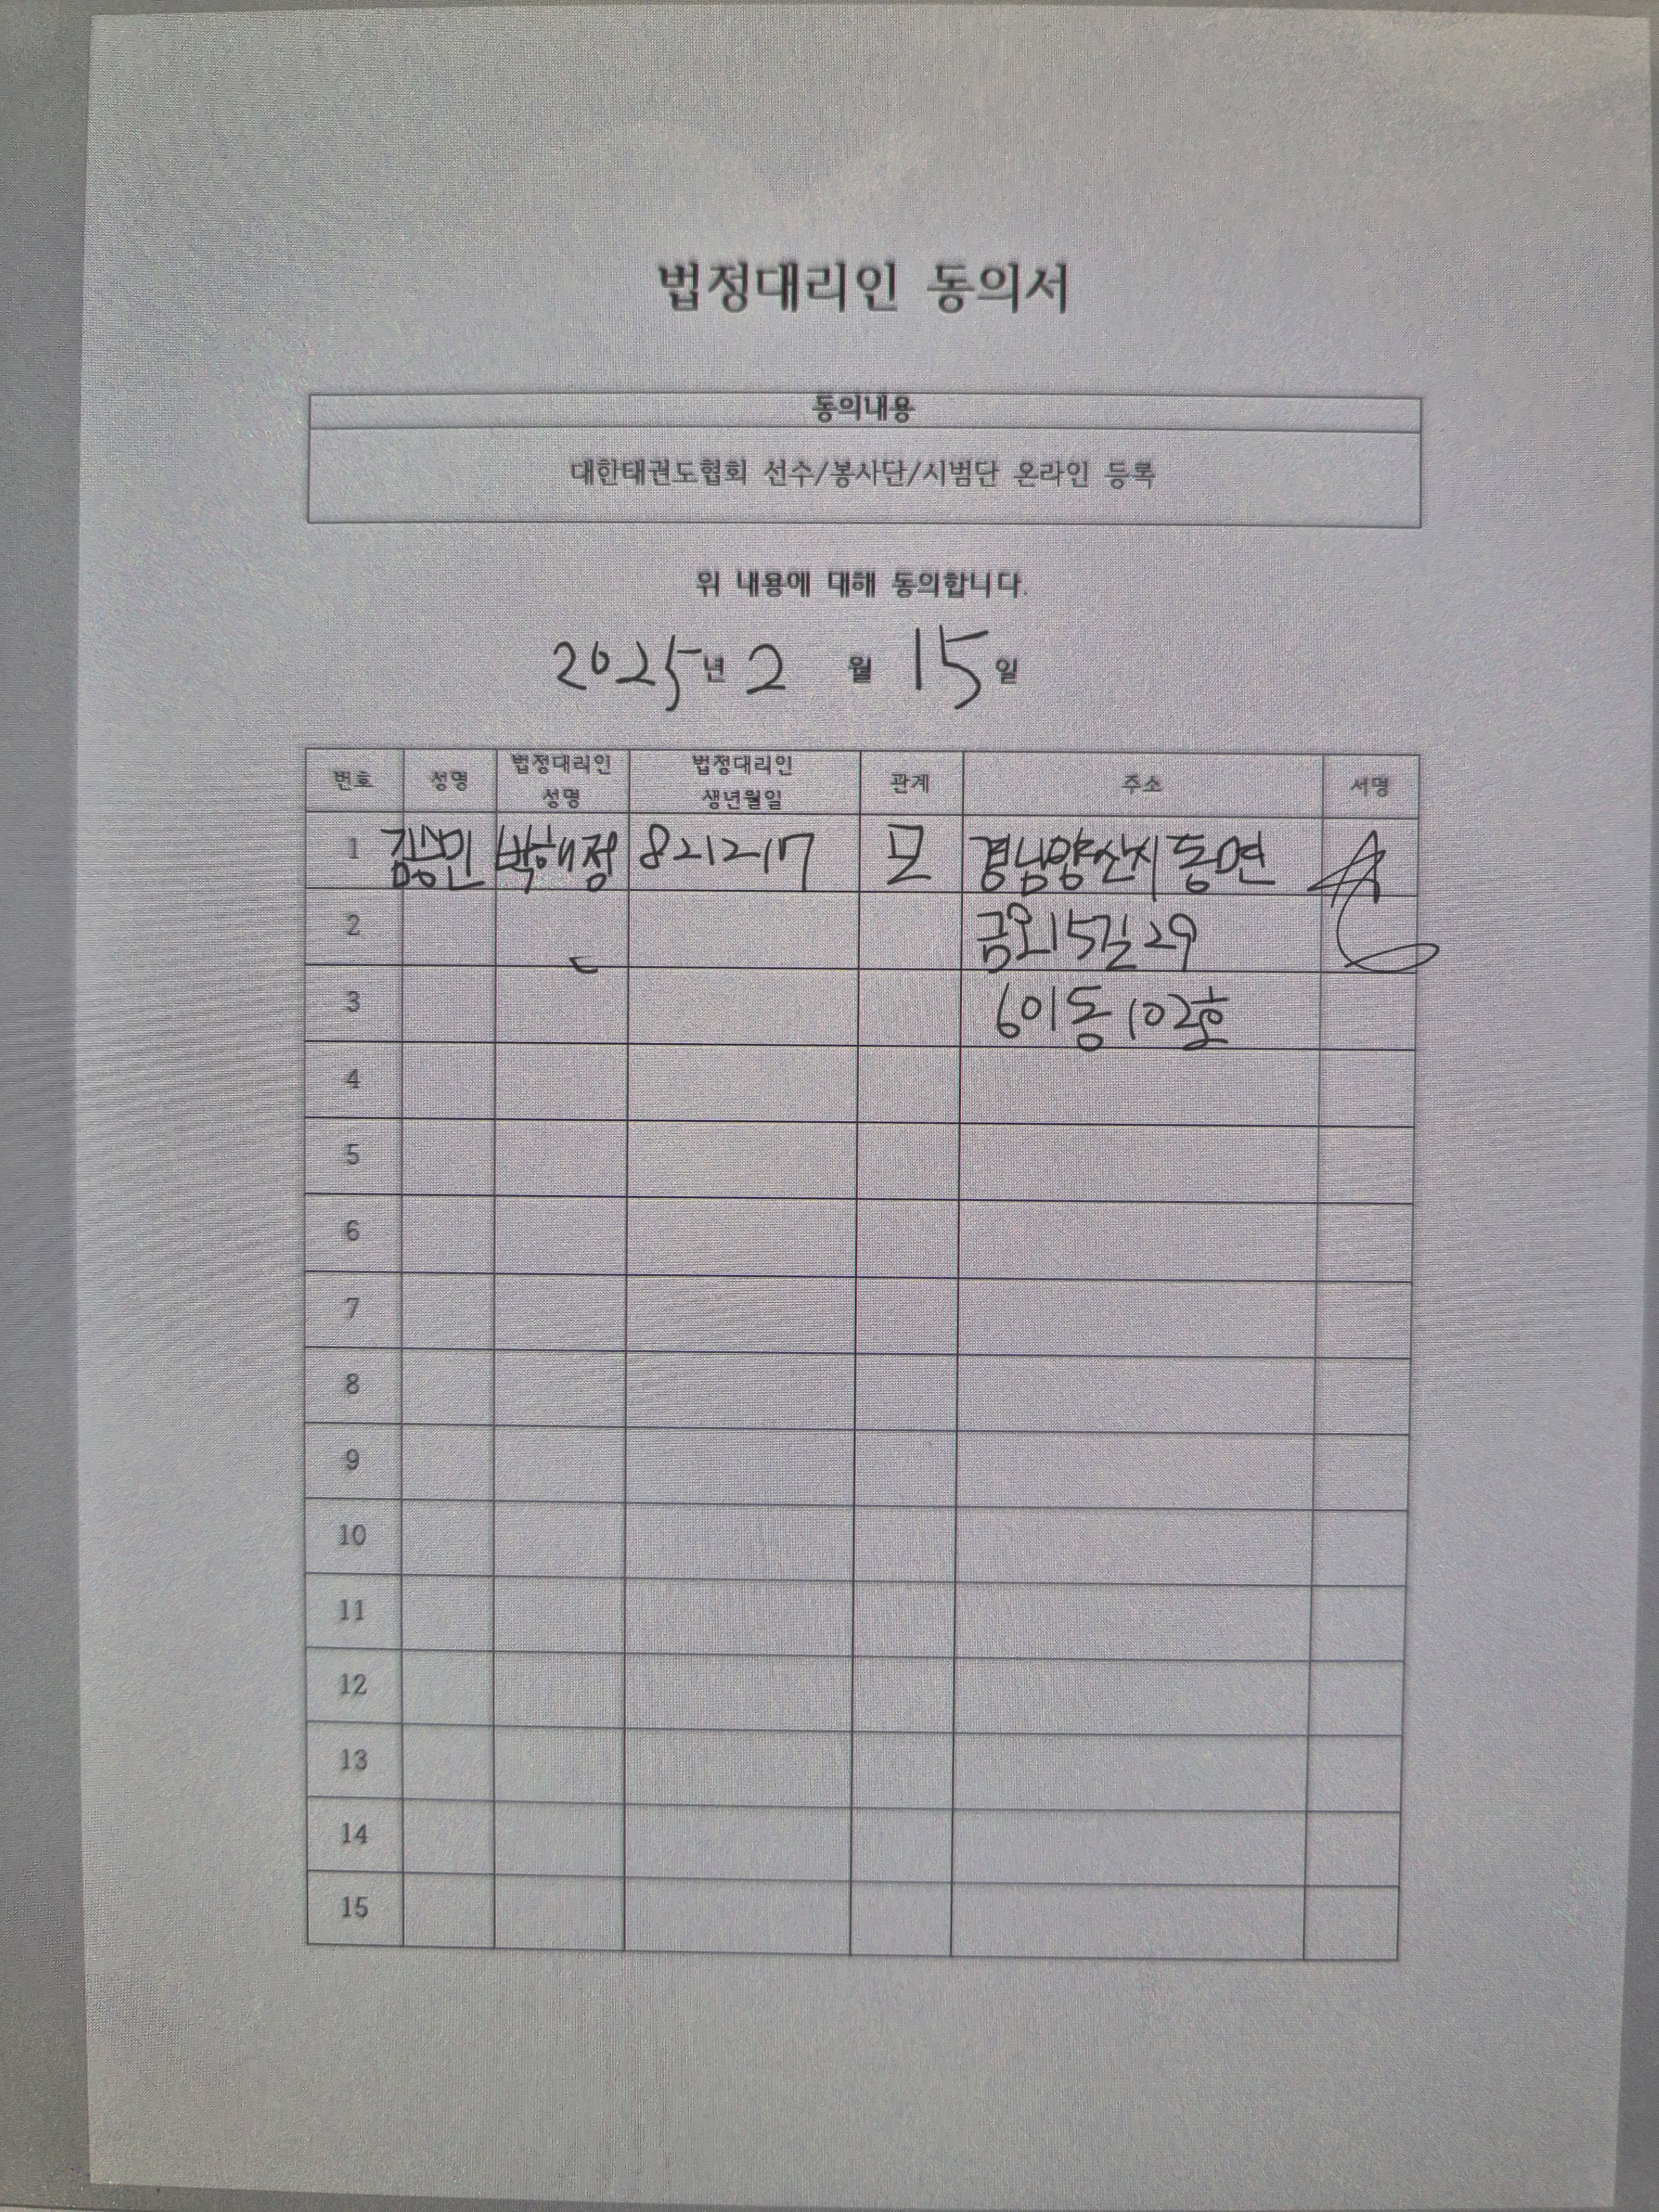 법정대리인 동의서
동의내용
대한태권도협회 선수/봉사단/시범단 온라인 등록
위 내용에 대해 동의합니다.
2025년 2 월 15일
번호 성명 법정대리인 성명 법정대리인 생년월일 관계 주소 서명
1 박해정 821217 모 경남양산시동면
2 금오15길 29
3 601동 102호
4
5
6
7
8
9
10
11
12
13
14
15